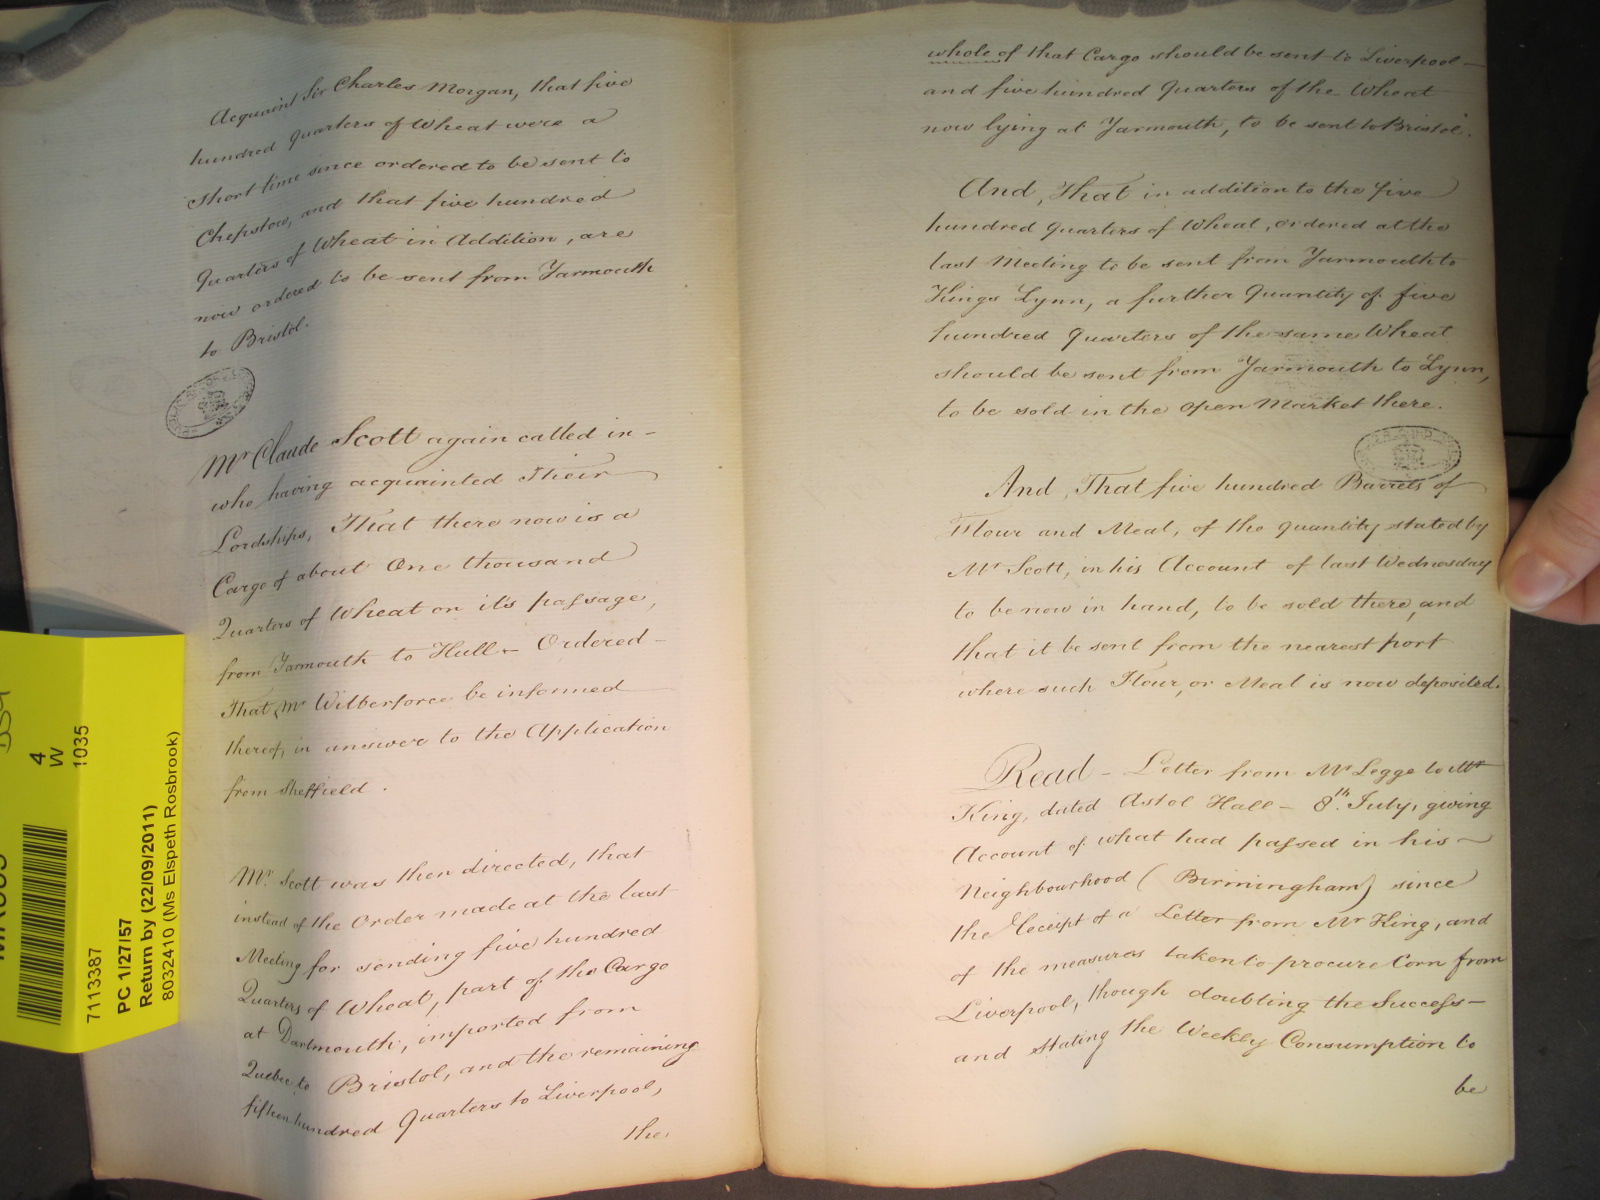 Acquaint Sir Charles Morgan, that five
hundred quarters of Wheat were a
Short time since ordered to be sent to
Chepstow, and that five hundred
Quarters of Wheat in Addition, are
now ordered to be sent from Yarmouth
to Bristol.
Mr Claude Scott again called in -
who having acquainted Their
Lordships, That there now is a
Cargo of about One thousand
Quarters of Wheat on it's passage,
from Yarmouth to Hull - Ordered -
That Mr Wilberforce be informed
thereof, in answer to the Application
from Sheffield.
Mr. Scott was then directed, that
instead of the Order made at the last
Meeting for sending five hundred
Quarters of Wheat, part of the Cargo
at Dartmouth, imported from
Quebec to Bristol, and the remaining
fifteen hundred Quarters to Liverpool,
the
whole of that Cargo should be sent to Liverpool -
and five hundred Quarters of the Wheat
now lying at Yarmouth, to be sent to Bristol.
And, That in addition to the five
hundred quarters of Wheat, ordered at the
last Meeting to be sent from Yarmouth to
Kings Lynn, a further Quantity of five
hundred Quarters of the same Wheat
should be sent from Yarmouth to Lynn,
to be sold in the open Market there.
And, That five hundred Barrels of
Flour and Meal, of the quantity stated by
Mr Scott, in his Account of last Wednesday
to be now in hand, to be sold there, and
that it be sent from the nearest port
where such Flour, or Meal is now deposited.
Read - Letter from Mr Legge to Mr
King, dated Astol Hall - 8th. July, giving
Account of what had passed in his -
Neighbourhood (Birmingham) since
the Receipt of a Letter from Mr King, and
of the measures taken to procure Corn from
Liverpool, though doubting the Success -
and stating the Weekly Consumption to
be
4
W
1035
7113387
PC 1/27/57
Return by (22/09/2011)
8032410 (Ms Elspeth Rosbrook)